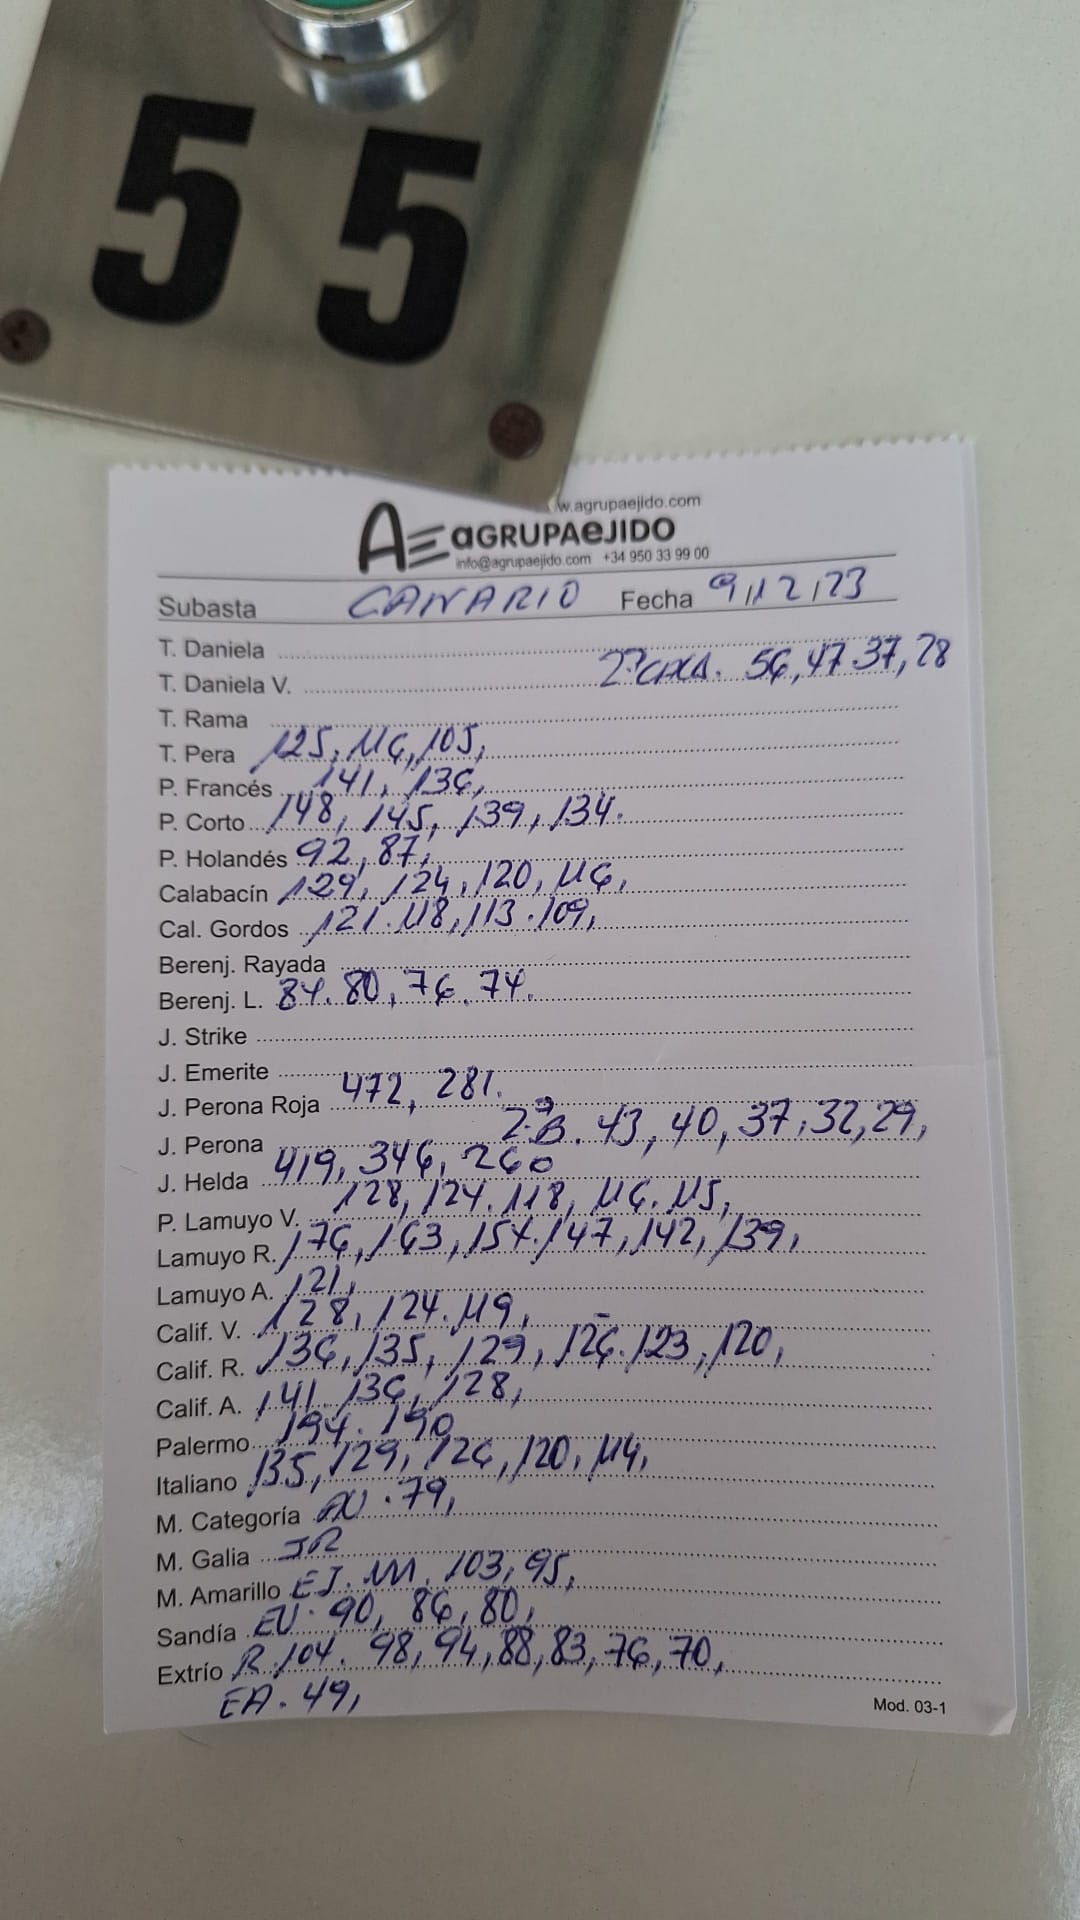 55
w.agrupaejido.com
AE aGRUPAeJIDO
info@agrupaejido.com +34 950 33 99 00
Subasta CANARIO Fecha 9/12/23
T. Daniela
T. Daniela V. 56, 47. 37, 28
T. Rama
T. Pera 125, 116, 105,
P. Francés 141, 136,
P. Corto 148, 145, 139, 134.
P. Holandés 92, 87,
Calabacín 129, 124, 120, 116,
Cal. Gordos 121. 118, 113. 109,
Berenj. Rayada
Berenj. L. 84. 80, 76. 74.
J. Strike
J. Emerite
J. Perona Roja 472, 281.
J. Perona 2ªB. 43, 40, 37, 32, 29,
J. Helda 419, 346, 260
P. Lamuyo V. 128, 124. 118, 116. 115,
Lamuyo R. 176, 163, 154. 147, 142, 139,
Lamuyo A. 121,
Calif. V. 128, 124. 119,
Calif. R. 136, 135, 129, 126. 123, 120,
Calif. A. 141. 136, 128,
Palermo 194. 190
Italiano 135, 129, 126, 120, 114,
M. Categoría 79,
M. Galia
M. Amarillo EJ. 111. 103, 95,
Sandía EU. 90, 86, 80,
Extrío R. 104. 98, 94, 88, 83, 76, 70,
EA. 49,
Mod. 03-1